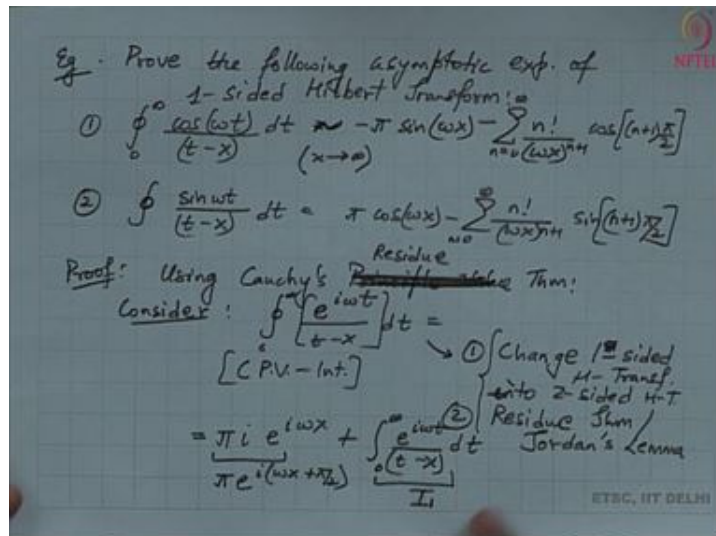 Eg. Prove the following asymptotic exp. of
NPTEL
1-sided Hilbert Transform:
① ∮₀^∞ cos(ωt)/(t-x) dt ~ -π sin(ωx) - ∑_{n=0}^∞ n!/(ωx)^{n+1} cos[(n+1)π/2]
(x→∞)
② ∮ sin ωt/(t-x) dt = π cos(ωx) - ∑_{n=0}^∞ n!/(ωx)^{n+1} sin[(n+1)π/2]
Residue
Proof: Using Cauchy's Thm:
Consider: ∮₀^∞ [e^{iωt}/(t-x)] dt =
[C P.V. - Int.]
→ ① Change 1-sided
H-Transf.
into 2-sided H-T
② Residue Thm/
Jordan's Lemma
= πi e^{iωx} + ∫₀^∞ e^{iωt}/(t-x) dt
πe^{i(ωx+π/2)} I₁
ETSC, IIT DELHI